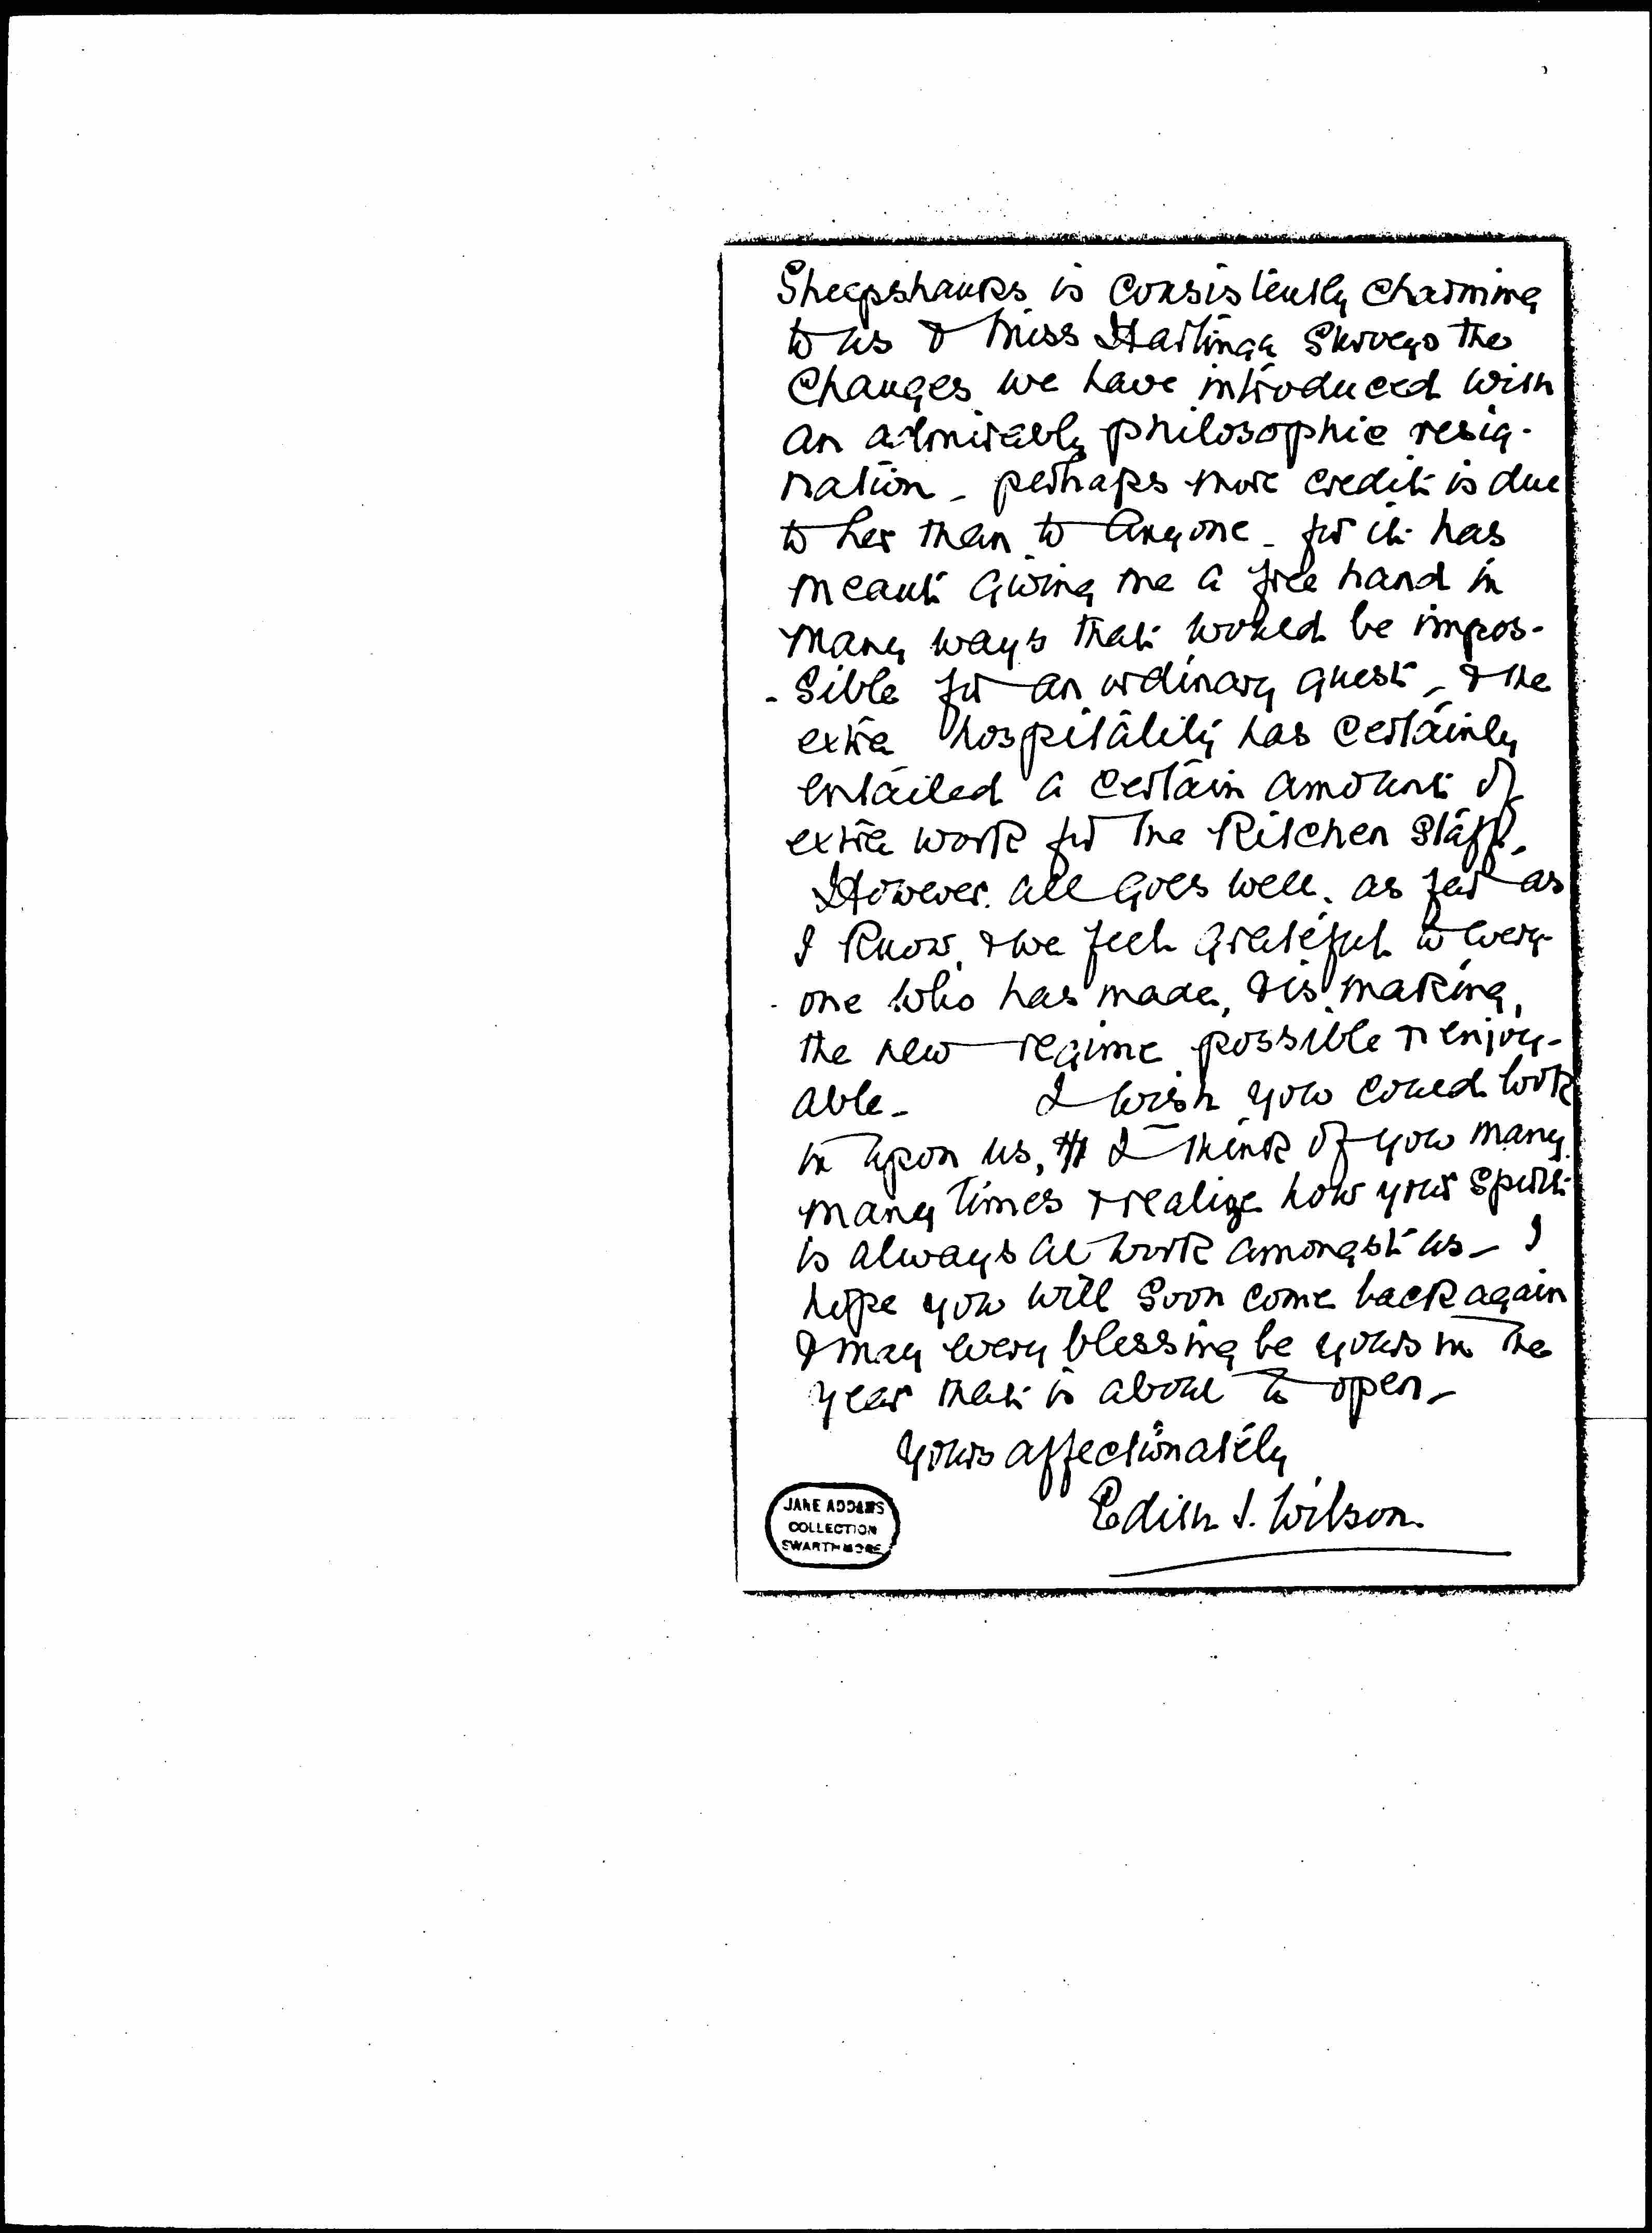 Sheepshanks is consistently charming
to us & Miss Hartinga surveys the
changes we have introduced with
an admirably philosophic resig-
nation - perhaps more credit is due
to her than to anyone - for it has
meant giving me a free hand in
many ways that would be impos-
- sible for an ordinary guest, - & the
extra hospitality has certainly
entailed a certain amount of
extra work for the kitchen staff.
However. all goes well. as far as
I know, & we feel grateful to every-
one who has made, & is making,
the new regime possible & enjoy-
able - I wish you could look
in upon us, I think of you many
many times & realize how your spirit
is always at work amongst us - I
hope you will soon come back again
& may every blessing be yours in the
year that is about to open -
Yours affectionately
Edith S. Wilson.
JANE ADDAMS
COLLECTION
SWARTHMORE